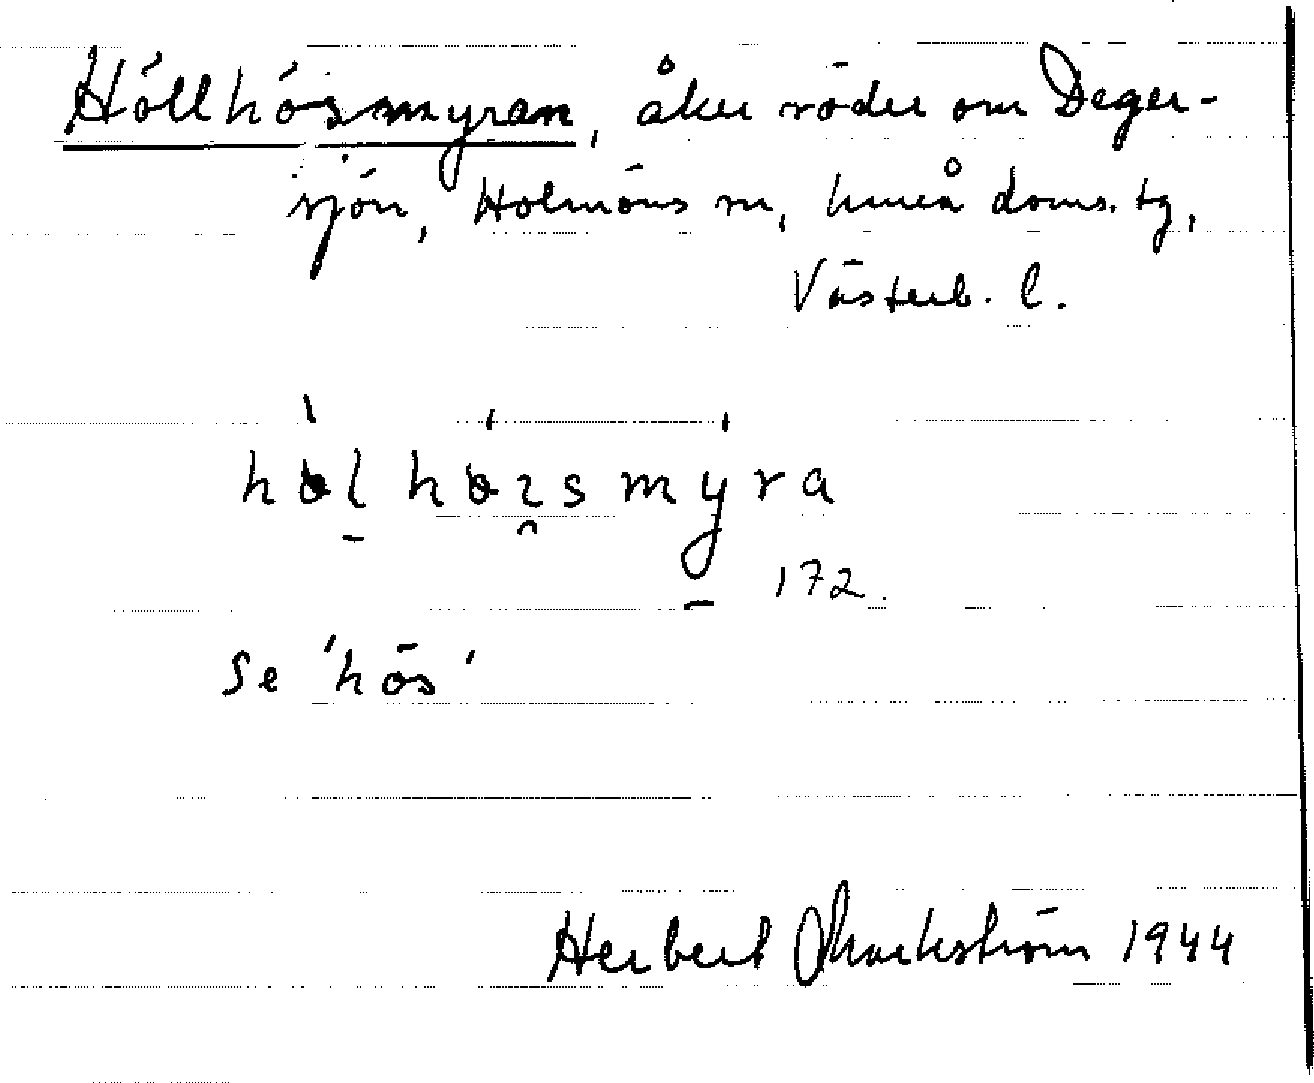 Höllhösmyran, åker söder om Deger-
sjön, Holmöns sn, Umeå doms. tg,
Västerb. l.
hөlhөısmyra
172.
Se 'hös'
Herbert Markström 1944